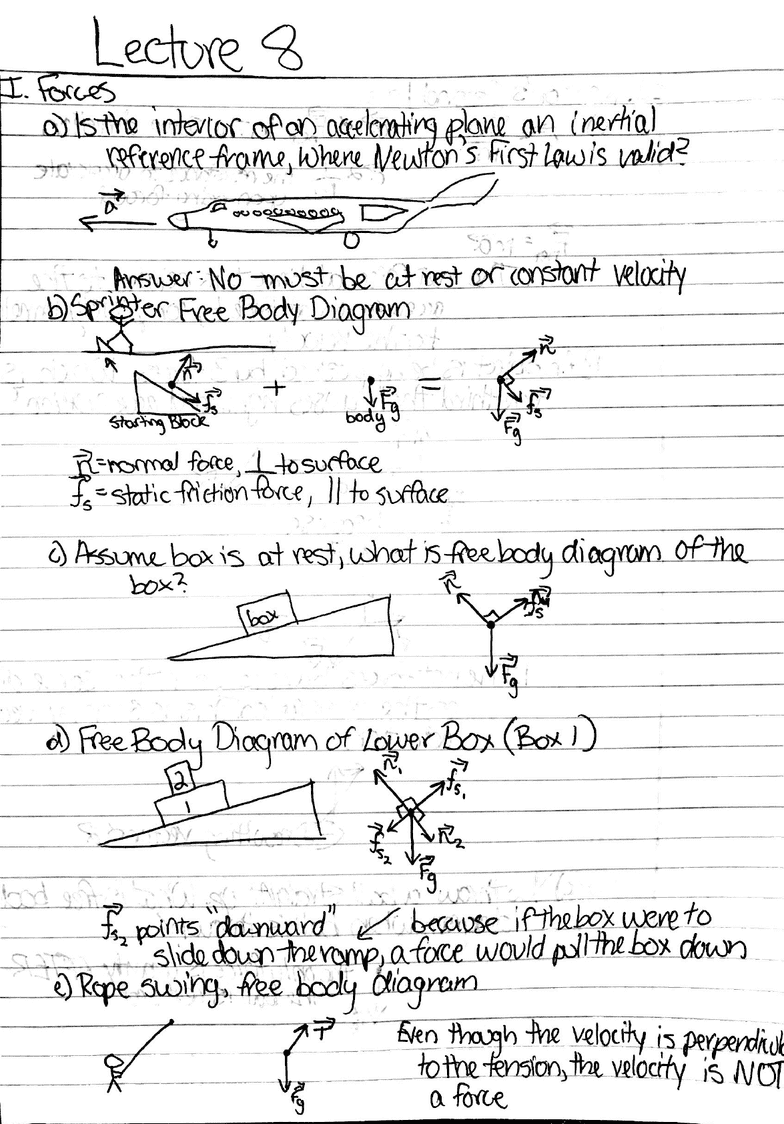 Lecture 8
I. Forces
a) Is the interior of an accelerating plane an inertial
reference frame, where Newton's First Law is valid?
a
Answer: No must be at rest or constant velocity
b) Sprinter Free Body Diagram
n
fs
Starting Block
+
Fg
body
=
n
fs
Fg
n = normal force, ⊥ to surface
fs = static friction force, || to surface
c) Assume box is at rest, what is free body diagram of the
box?
box
n
fs
Fg
d) Free Body Diagram of Lower Box (Box 1)
2
1
n1
fs1
fs2
n2
Fg
fs2 points "downward" ↙ because if the box were to
slide down the ramp, a force would pull the box down
e) Rope swing, free body diagram
T
Fg
Even though the velocity is perpendicul
to the tension, the velocity is NOT
a force